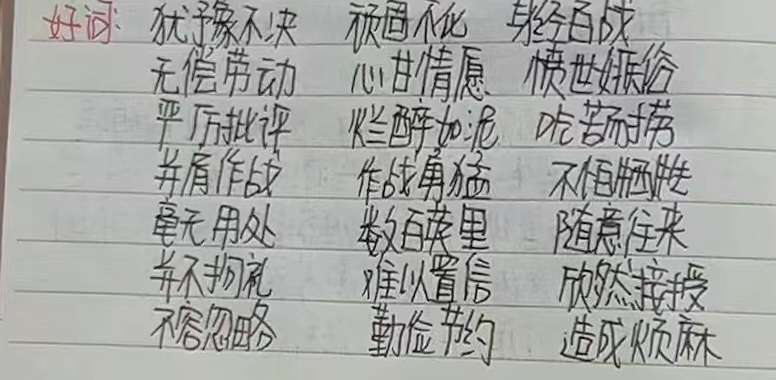 好词: 犹予象不决 顽固不化 身经百战
无偿劳动 心甘情愿 愤世嫉俗
严厉批评 烂醉如泥 吃苦耐劳
并肩作战 作战勇猛 不怕牺牲
毫无用处 数百英里 随意往来
并不拘礼 难以置信 欣然接授
不容忽略 勤俭节约 造成烦麻